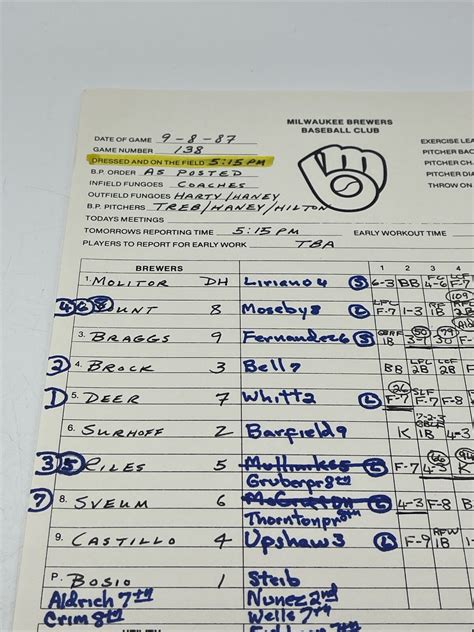 MILWAUKEE BREWERS
BASEBALL CLUB
DATE OF GAME 9-8-87
GAME NUMBER 138
DRESSED AND ON THE FIELD 5:15 PM
B.P. ORDER AS POSTED
INFIELD FUNGOES COACHES
OUTFIELD FUNGOES HARTY/HANEY
B.P. PITCHERS TREB/HANEY/HILTON
TODAYS MEETINGS
TOMORROWS REPORTING TIME 5:15 PM EARLY WORKOUT TIME
PLAYERS TO REPORT FOR EARLY WORK TBA
EXERCISE LEA
PITCHER BAC
PITCHER CHA
PITCHER DIA
THROW OH
BREWERS 1 2 3 4
1. MOLITOR DH Liriano 4 S 6-3 BB 4-6 F-7
4 6 8 OUNT 8 Moseby 8 L F-7 1-3
3. BRAGGS 9 Fernandez 6 S 1B 3-1
2 4. BROCK 3 Bell 7 BB
1 5. DEER 7 Whitt 2 L F-7 F-7 F-8
6. SURHOFF 2 Barfield 9 K 1B 4-3
3 5 RILES 5 Mulliniks 5 L F-7 4-3 K
Gruber pr 8th
7 8. SVEUM 6 McGriff DH L 4-3 F-8
Thornton pr 8th
9. CASTILLO 4 Upshaw 3 L F-9 1B
P. BOSIO 1 Stieb
Aldrich 7th Nunez 2nd
Crim 8th Wells 7th